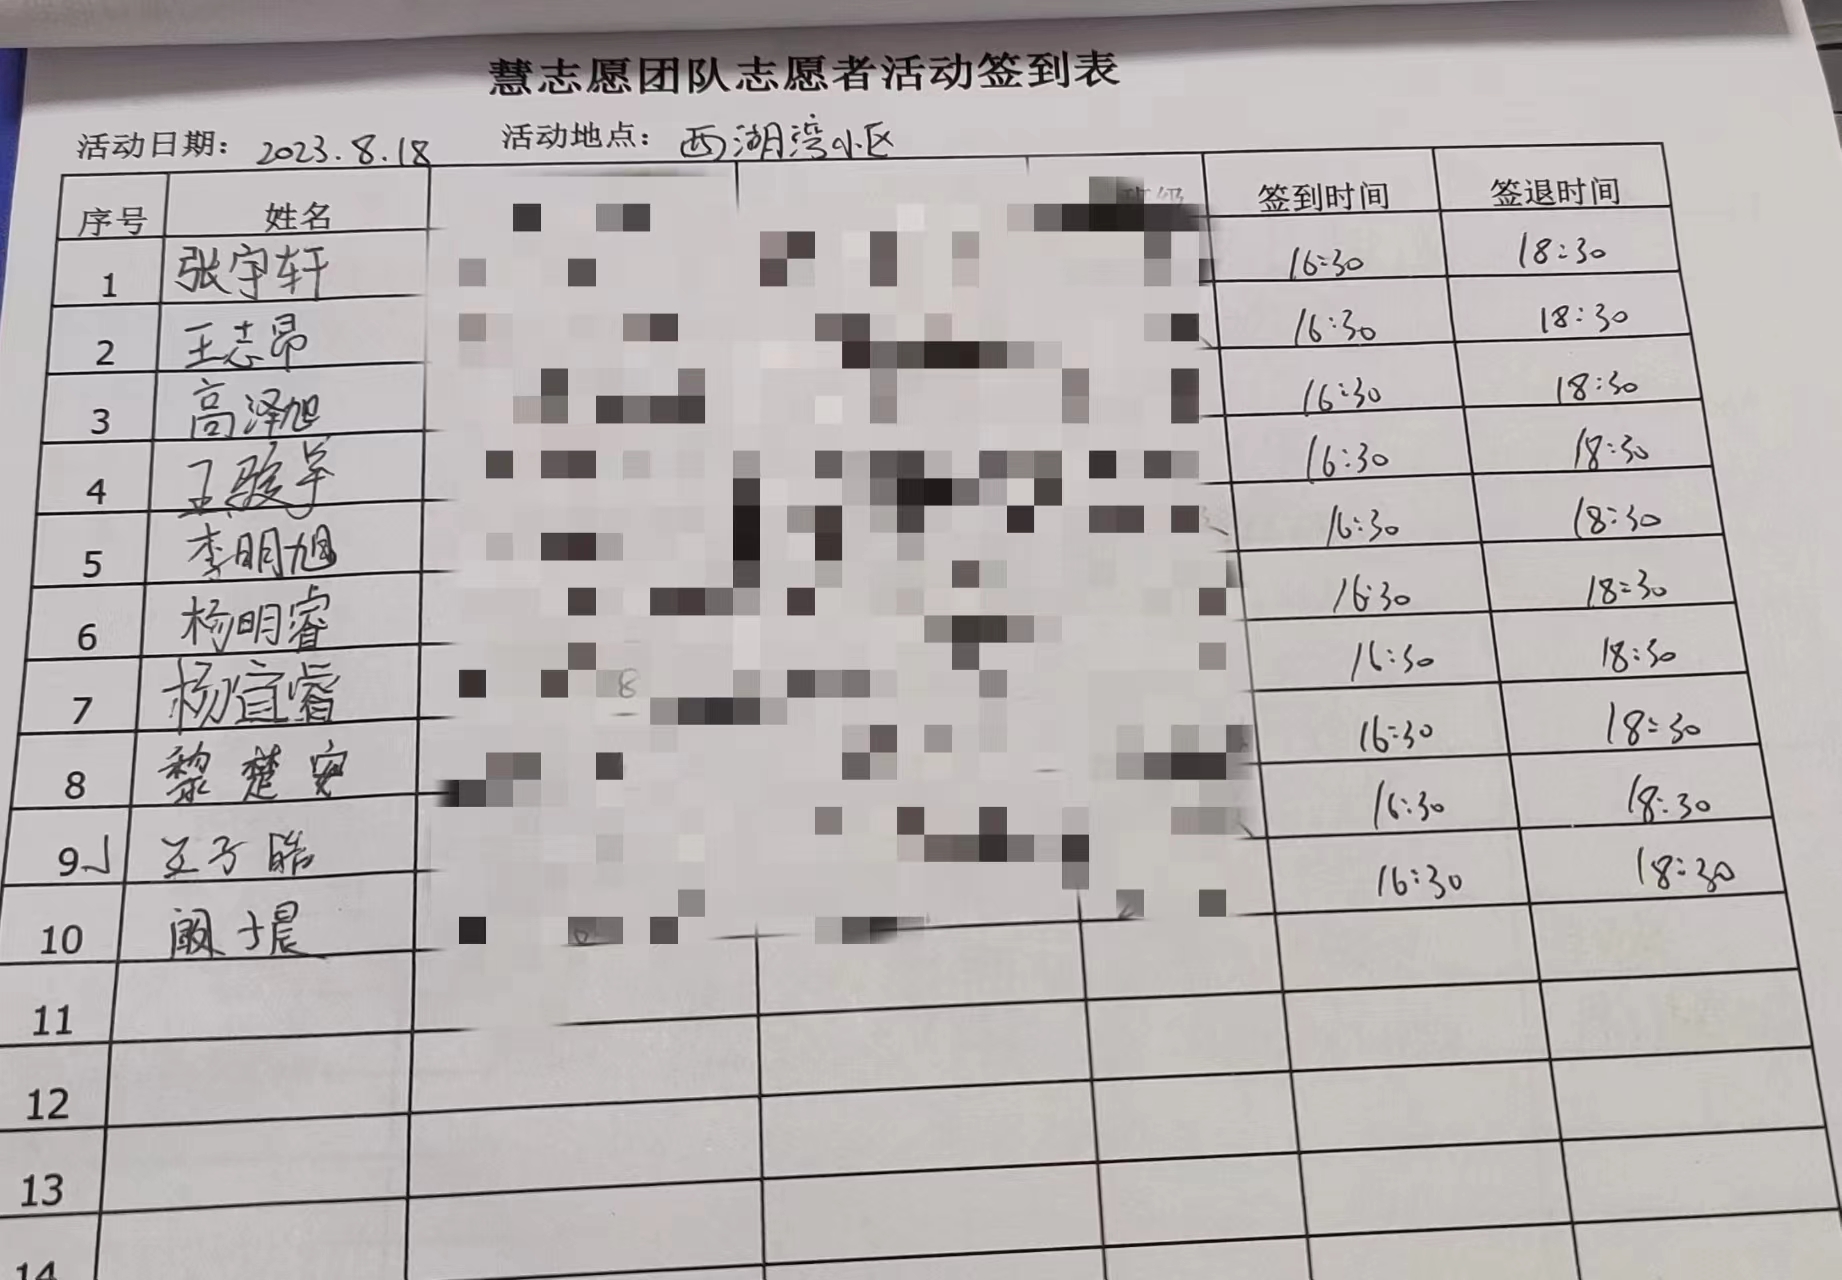 慧志愿团队志愿者活动签到表
活动日期: 2023.8.18 活动地点: 西湖湾小区
序号 姓名 班级 签到时间 签退时间
1 张宇轩 16:30 18:30
2 王志昂 16:30 18:30
3 高泽旭 16:30 18:30
4 王骏宇 16:30 18:30
5 李明旭 16:30 18:30
6 杨明睿 16:30 18:30
7 杨宜睿 8 16:30 18:30
8 黎楚安 16:30 18:30
9√ 王子皓 16:30 18:30
10 阚子晨 16:30 18:30
11
12
13
14